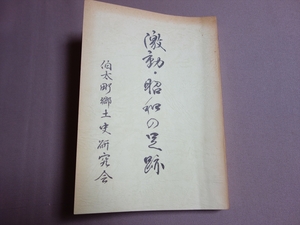 激動・昭和の足跡
伯太町郷土史研究会